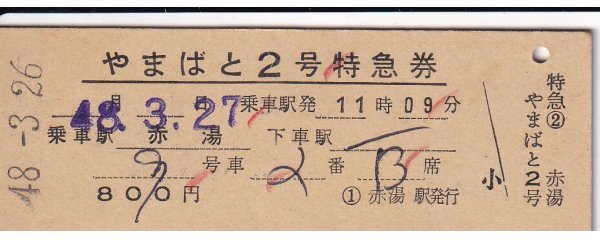 やまばと2号特急券
48.3.27 月 日 乗車駅発 11時09分
乗車駅 赤湯 下車駅
号車 2番 B席
800円 ① 赤湯 駅発行
小
特急② 赤湯
やまばと2号
48-3-26